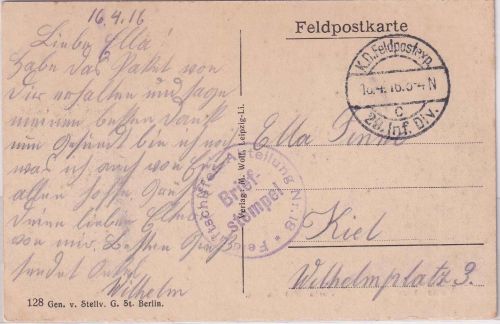 16.4.16
Liebe Ella!
habe das Paket von
Dir erhalten und sage
meinen besten Dank
bin noch
was ich auch von
allen hoffe
deinen lieben Eltern
von mir. Besten Gruß
sendet Onkel
Wilhelm
128 Gen. v. Stellv. G. St. Berlin.
Verlag: M. Wolf, Leipzig-Li.
Feldpostkarte
K.D. Feldpostexp.
16.4.16.3-4 N
c
Inf. Div.
Abteilung Nr. 18
Brief-
stempel
Ella
Kiel
Wilhelmplatz 3.